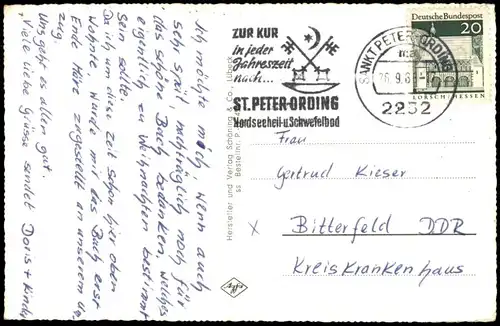 Ich möchte mich, wenn auch
sehr spät, nachträglich noch für
das schöne Buch bedanken, welches
eigentlich zu Weihnachten bestimmt
sein sollte.
Da ich um diese Zeit schon hier oben
wohnte wurde mir das Buch erst
Ende März zugestellt an unserem
zug.
Uns geht es allen gut.
Viele liebe Grüsse sendet Doris +
Hersteller und Verlag Schöning & Co., Lübeck
ZUR KUR
in jeder
Jahreszeit
nach...
ST. PETER-ORDING
Nordseeheil- u. Schwefelbad
SANKT PETER-ORDING
2252
Deutsche Bundespost
20
LORSCH/HESSEN
Frau
Gertrud Kieser
x Bitterfeld DDR
Kreiskrankenhaus